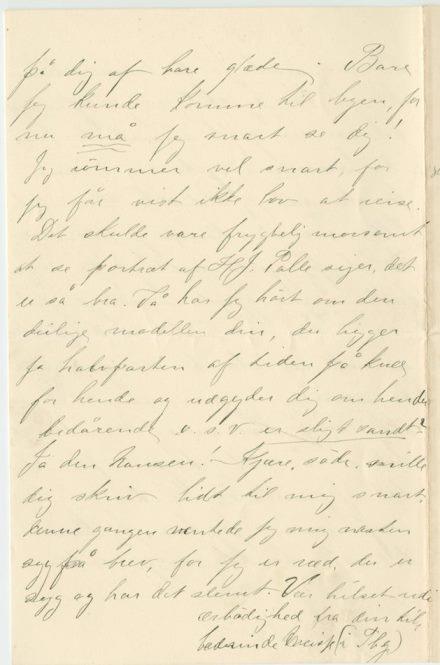 på dig af bare glæde. Bare
jeg kunde komme til byen, for
nu må jeg snart se dig!
Jeg kommer vel snart, for
jeg får vist ikke lov at reise.
Det skulde være frygtelig morsomt
at se portræt af H. J. Palle siger, det
er så bra. Så har jeg hørt om den
deilige modellen din, du ligger
jo halvparten af tiden på knæ
for hende og udgyder dig om hendes
bedårende o. s. v. er sligt sandt?
Ja den Nansen! Kjære, søde, snille
dig skriv lidt til mig snart.
denne gangen ventede jeg mig næsten
syg på brev, for jeg er ræd, du er
syg og har det slemt. Vær hilset udi
ærbødighed fra din